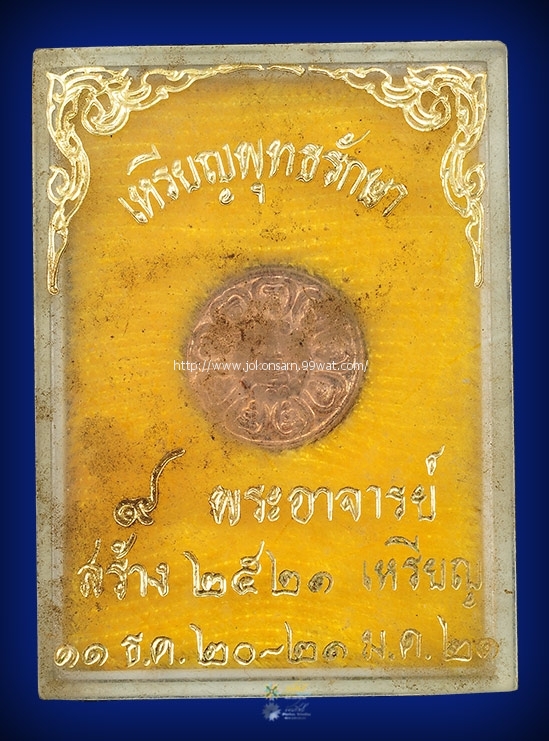 เหรียญพุทธรักษา
http://www.jokonsarn.99wat.com/
๙ พระอาจารย์
สร้าง ๒๕๒๑ เหรียญ
๑๑ ธ.ค.๒๐~๒๑ ม.ค.๒๑